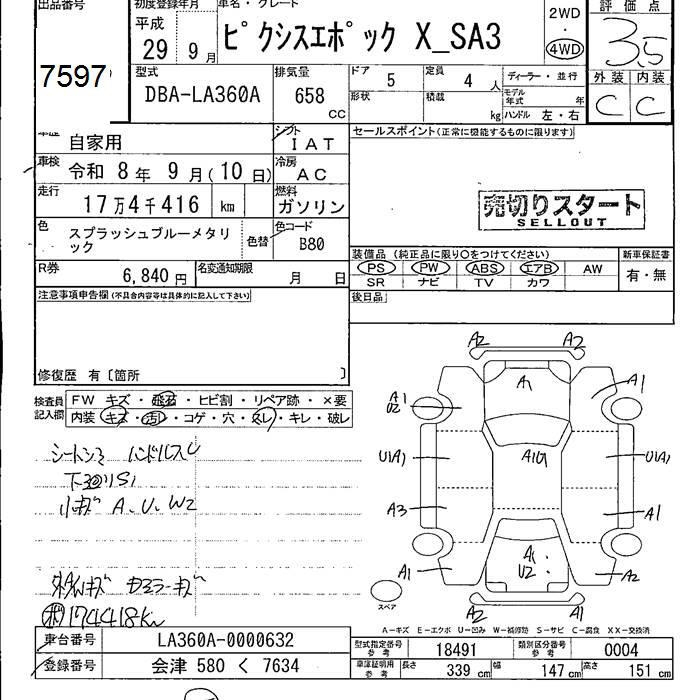 出品番号
7597
初度登録年月
平成 29 年 9 月
車名・グレード
ピクシスエポック X_SA3
2WD
・
4WD
評価点
3.5
型式
DBA-LA360A
排気量
658 CC
ドア 5
定員 4 人
形状
積載 kg
ディーラー・並行
モデル年式 年
ハンドル 左・右
外装 内装
C C
車歴 自家用
シフト IAT
セールスポイント(正常に機能するものに限ります)
車検 令和 8 年 9 月(10 日)
冷房 AC
走行 17 万 4 千 416 km
燃料 ガソリン
売切りスタート
SELLOUT
色 スプラッシュブルーメタリック
色替
色コード B80
装備品(純正品に限り○をつけてください)
新車保証書
PS PW ABS エアB AW
SR ナビ TV カワ
有・無
R券 6,840 円
名変通知期限 月 日
後日品
注意事項申告欄(不具合内容等は具体的に記入して下さい)
修復歴 有〔箇所 〕
検査員記入欄
FW キズ・飛石・ヒビ割・リペア跡・×要
内装 キズ・汚レ・コゲ・穴・スレ・キレ・破レ
ハンドルスレ
下廻リサビ
小キズ A、U、W2
カラーキズ
174418km
A2 A2
A1
U2
A1
A1
U(A) U(A)
A3 A1
A1
U2
A1 A2
スペア
A2 A1
A-キズ E-エクボ U-凹み W-補修跡 S-サビ C-腐食 XX-交換済
車台番号 LA360A-0000632
型式指定番号 参考 18491
類別区分番号 参考 0004
登録番号 会津 580 く 7634
車庫証明用 参考 長さ 339 cm 幅 147 cm 高さ 151 cm